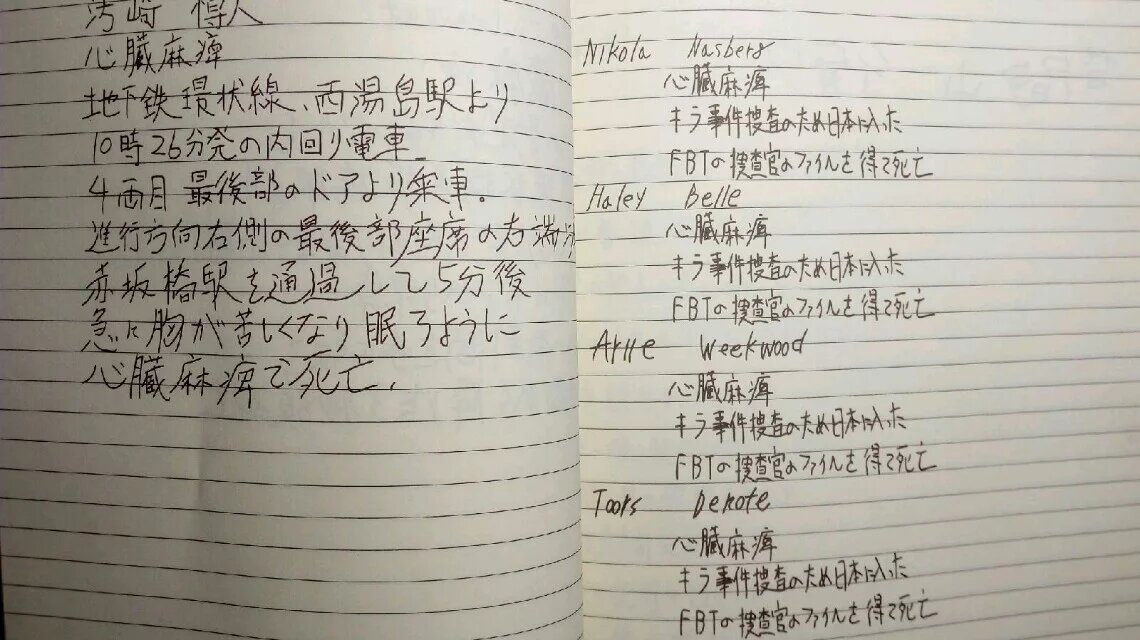 心臓麻痺
地下鉄環状線、西湯島駅より
10時26分発の内回り電車。
4両目最後部のドアより乗車。
進行方向右側の最後部座席の右端
赤坂橋駅を通過して5分後
急に胸が苦しくなり眠るように
心臓麻痺で死亡。
Nikola Nasberg
心臓麻痺
キラ事件捜査のため日本に入った
FBTの捜査官のファイルを得て死亡
Haley Belle
心臓麻痺
キラ事件捜査のため日本に入った
FBTの捜査官のファイルを得て死亡
Weekwood
心臓麻痺
キラ事件捜査のため日本に入った
FBTの捜査官のファイルを得て死亡
Toors
心臓麻痺
キラ事件捜査のため日本に入った
FBTの捜査官のファイルを得て死亡